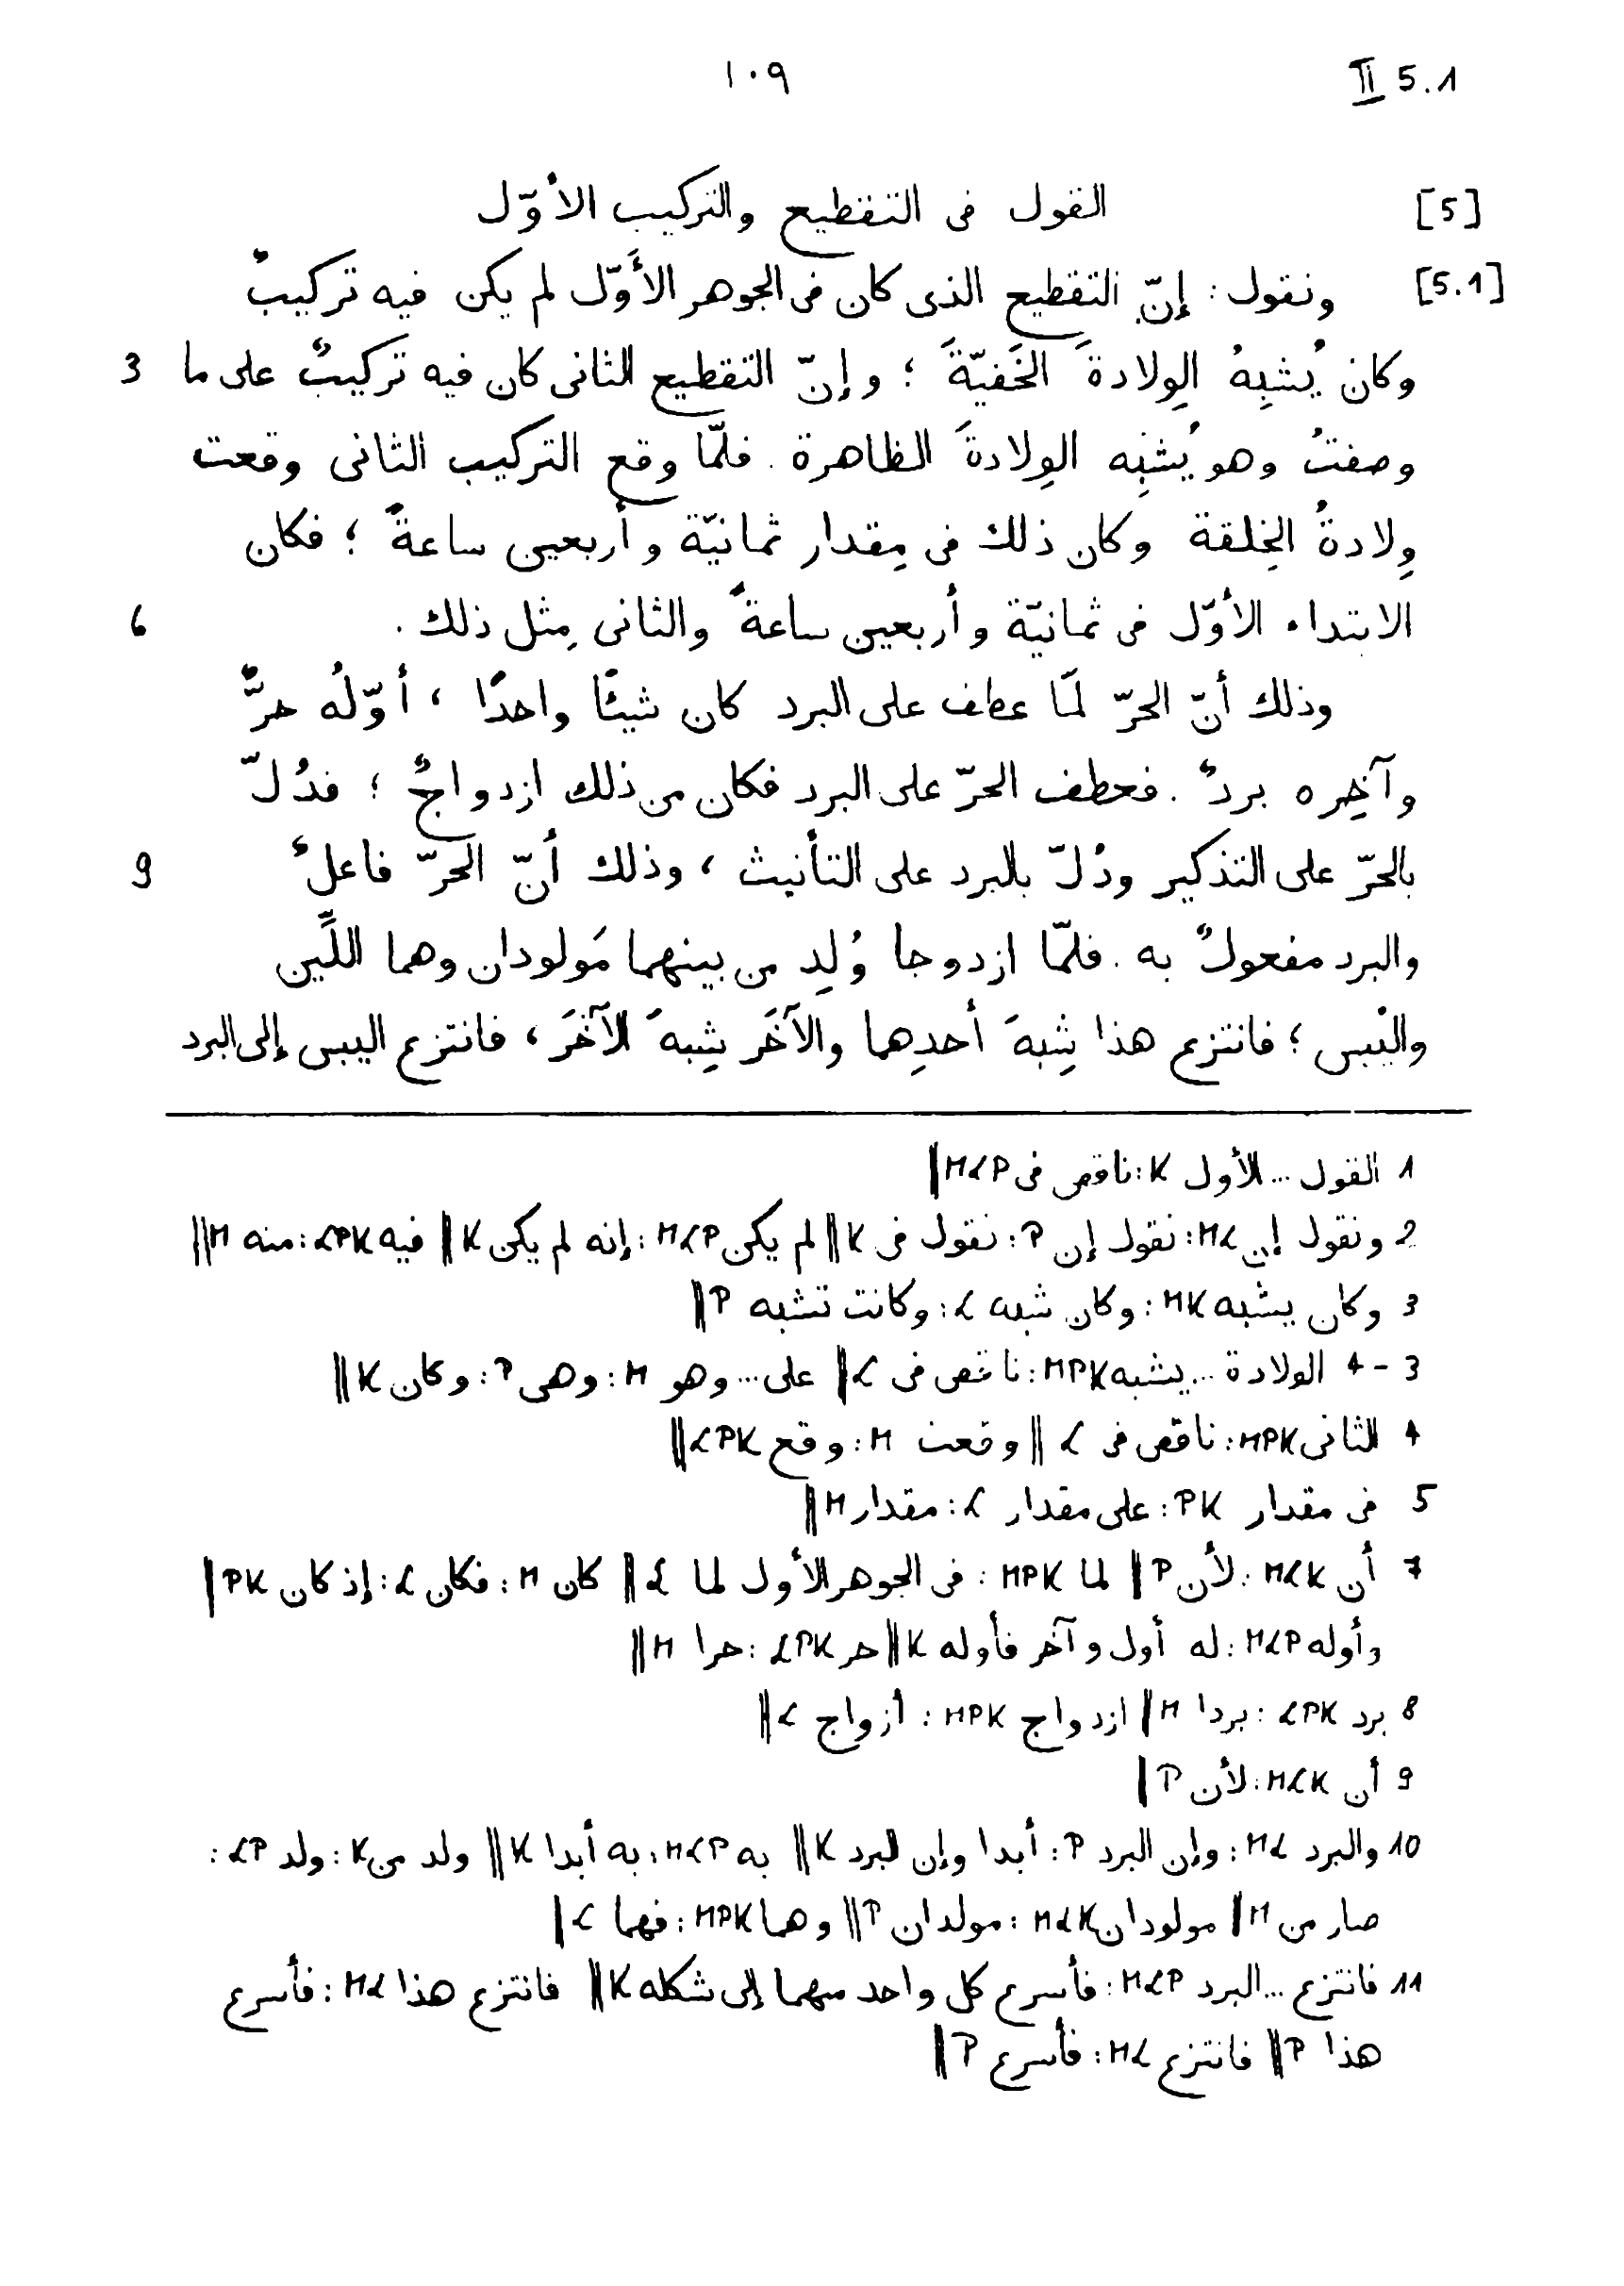 ١٠٩ II 5.1
[5] القول فى التقطيع والتركيب الأوّل
[5.1] ونقول: إنّ التقطيع الذى كان فى الجوهر الأَوّل لم يكن فيه تركيبٌ
وكان يُشبِهُ الوِلادةَ الخَفيّةَ؛ وإنّ التقطيع الثانى كان فيه تركيبٌ على ما 3
وصفتُ وهو يُشبِه الوِلادةَ الظاهرة. فلمّا وقع التركيب الثانى وقعت
وِلادةُ الخِلقة وكان ذلك فى مِقدار ثمانيّة وأربعين ساعةً؛ فكان
الابتداء الأوّل فى ثمانيّة وأربعين ساعةً والثانى مِثل ذلك. 6
وذلك أنّ الحرّ لمّا عطف على البرد كان شيئًا واحدًا، أوّلُه حرٌّ
وآخِره بردٌ. فعطف الحرّ على البرد فكان من ذلك ازدواجٌ؛ فدُلّ
بالحرّ على التذكير ودُلّ بالبرد على التأنيث، وذلك أنّ الحرّ فاعلٌ 9
والبرد مفعولٌ به. فلمّا ازدوجا وُلِد من بينهما مَولودان وهما اللَّين
واليُبس؛ فانتزع هذا شِبهَ أحدِهما والآخَر شِبهَ الآخَرَ، فانتزع اليبس إلى البرد
1 القول … الأول K: ناقص فى MLP‖
2 ونقول إن ML: نقول إن P: نقول فى K‖ لم يكن MLP: إنه لم يكن K‖ فيه LPK: منه M‖
3 وكان يشبه MK: وكان شبه L: وكانت تشبه P‖
3-4 الولادة … يشبه MPK: ناقص فى L‖ على … وهو M: وهى P: وكان K‖
4 الثانى MPK: ناقص فى L‖ وقعت M: وقع LPK‖
5 فى مقدار PK: على مقدار L: مقدار M‖
7 أن MLK: لأن P‖ لما MPK: فى الجوهر الأول لما L‖ كان M: فكان L: إذ كان PK‖
وأوله MLP: له أول وآخر فأوله K‖ حر LPK: حرا M‖
8 برد LPK: بردا M‖ ازدواج MPK: أزواج L‖
9 أن MLK: لأن P‖
10 والبرد ML: وإن البرد P: أبدا وإن البرد K‖ به MLP: به أبدا K‖ ولد من K: ولد LP:
صار من M‖ مولودان MLK: مولدان P‖ وهما MPK: فهما L‖
11 فانتزع … البرد MLP: فأسرع كل واحد منهما إلى شكله K‖ فانتزع هذا ML: فأسرع
هذا P‖ فانتزع ML: فأسرع P‖